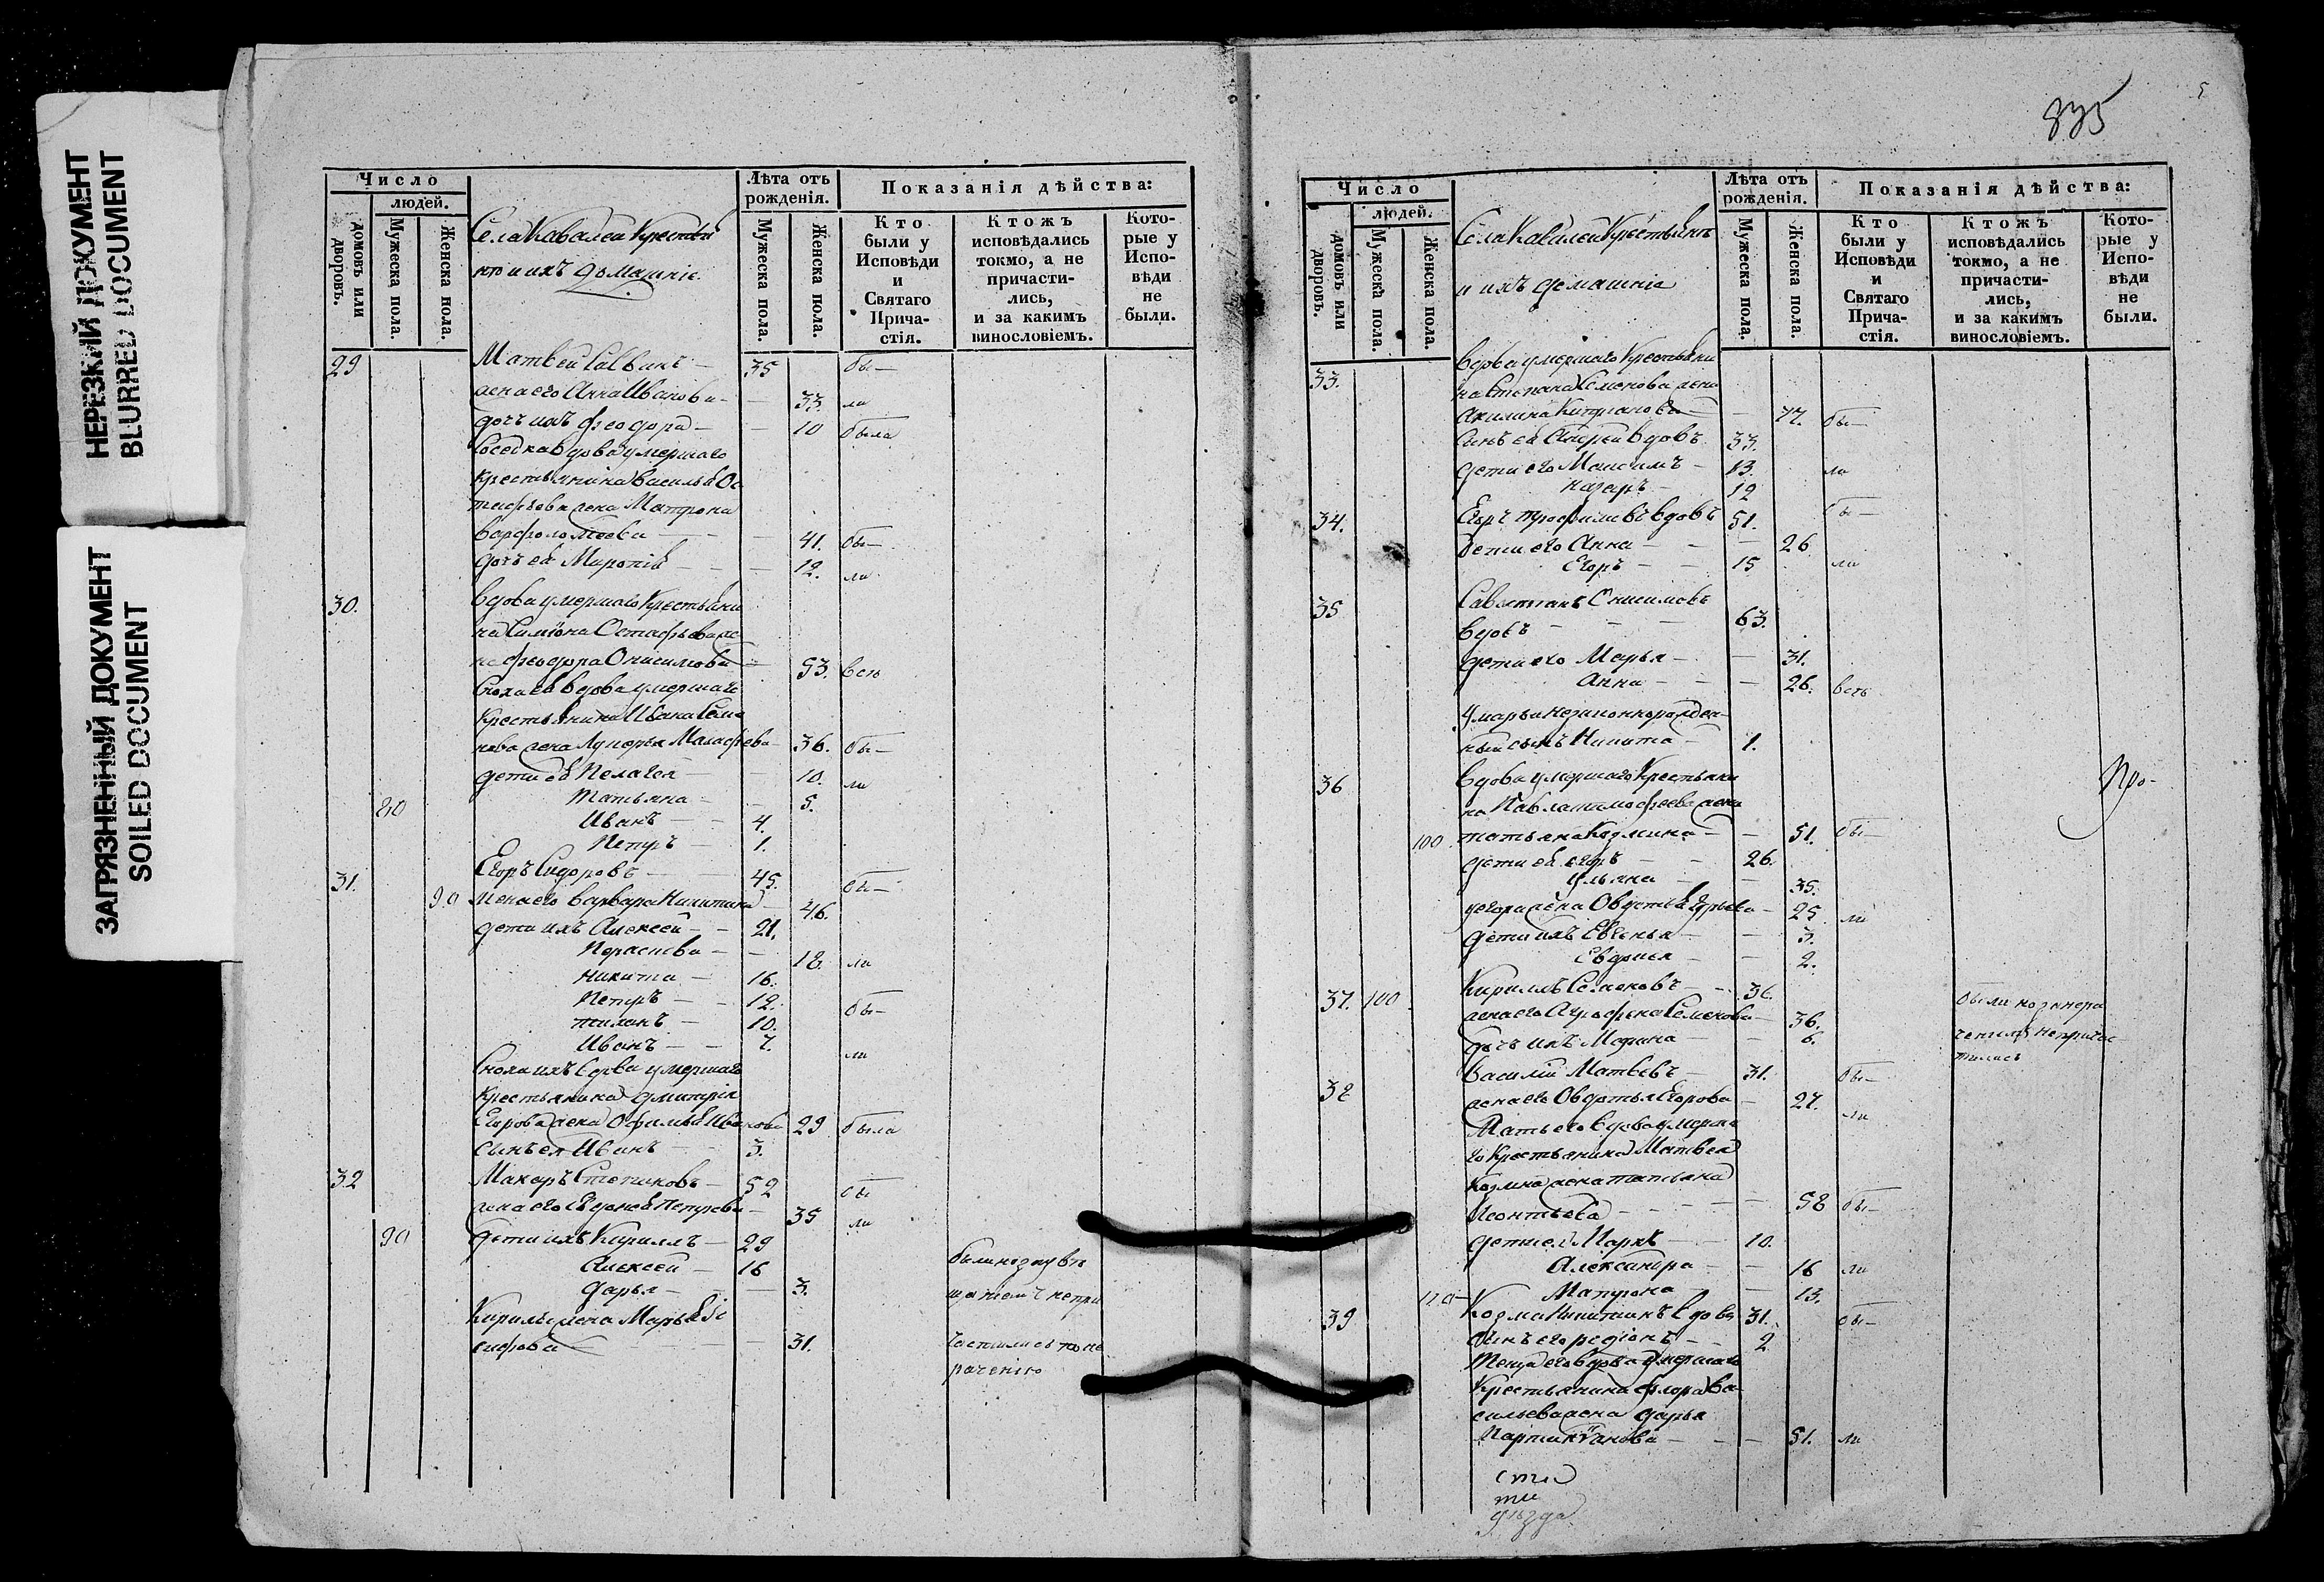 НЕРЕЗКИЙ ДОКУМЕНТ
BLURRED DOCUMENT
ЗАГРЯЗНЕННЫЙ ДОКУМЕНТ
SOILED DOCUMENT
Число
людей.
домовъ или дворовъ.
Мужеска пола.
Женска пола.
Села Кавалей Крестья
не и ихъ домашніе
Лѣта отъ рожденія.
Мужеска пола.
Женска пола.
Показанія дѣйства:
Кто были у Исповѣди и Святаго Прича-стія.
Ктожъ исповѣдались токмо, а не причасти-лись, и за какимъ винословіемъ.
Кото-рые у Испо-вѣди не были.
29 Матвей Савинъ 35 бы-
жена его Анна Иванова 33. ли
дочь ихъ Феодора 10 была
Соседка вдова умершаго
крестьянина Василья Ос
тафьева жена Матрона
Варфоломеева 41. бы-
дочь её 12. ли
30. Вдова умершаго Крестьяни
на Симіона Остафьева же
на Феодора Онисимова 53.
Сноха ея вдова умершаго
Крестьянина Ивана Семе
нова жена Лукерья Малафеева 36. бы-
дети её Пелагея 10. ли
Татьяна 5.
80 Иванъ 4.
Петръ 1.
31. Егоръ Сидоровъ 45. бы-
90 Жена его Варвара Никитина 46.
дети ихъ Алексей 21.
Параскева 18. ли
Никита 16.
Петръ 12. бы-
10.
Иванъ 7. ли
Сноха ихъ вдова умершаго
крестьянина Дмитрія
Егорова жена Офимья Иванова 29 была
Сынъ ея Иванъ 3.
32 Макаръ Степановъ 52 бы
жена его Евдокея Петрова 35 ли
90 Дети ихъ Кирилъ 29
Алексей 16 были но
Дарья 3. непри
Кирилы жена Марья
31. частились по не
рачению
835
Число
людей.
домовъ или дворовъ.
Мужеска пола.
Женска пола.
Села Кавалей Крестьяне
и ихъ домашніе
Лѣта отъ рожденія.
Мужеска пола.
Женска пола.
Показанія дѣйства:
Кто были у Исповѣди и Святаго Прича-стія.
Ктожъ исповѣдались токмо, а не причасти-лись, и за какимъ винословіемъ.
Кото-рые у Испо-вѣди не были.
33. Вдова умершаго Крестьяни
на Степана Семенова жена
Акилина Киприанова 77. бы-
Сынъ её Андрей вдовъ 33.
дети его Максимъ 13. ли
Назаръ 12
34. Егоръ Трофимовъ вдовъ 51. бы-
Дети его Анна 26
Егоръ 15 ли
35 Савостианъ Онисимовъ
вдовъ 63.
дети его Марья 31.
Анна 26.
У Марьи незаконнорожден-
ный сынъ Никита 1.
36 Вдова умершаго Крестьяни
на Павла Тимофеева жена
100 Татьяна Козмина 51. бы-
дети её Егоръ 26.
Ульяна 35.
у Егора жена Овдотья 25 ли
Дети ихъ Евгенья 3.
2.
37. 100 Кирилъ Семеновъ 36. были но за нера
жена его Агрофена Семенова 36. чениемъ непричас
дочь ихъ Марина 6. тились
38 Василій Матвевъ 31. бы-
жена его Овдотья Егорова 27. ли
Мать его вдова умерша
го Крестьянина Матвея
Козмина жена Татьяна
Леонтьева 58 бы-
Дети ея Маркъ 10.
Александра 16 ли
Матрона 13.
39 Козма Никитинъ вдовъ 31. бы-
сынъ его Родіонъ 2
Теща его вдова умершаго
Крестьянина Флора Ва
сильева жена Дарья
51. ли